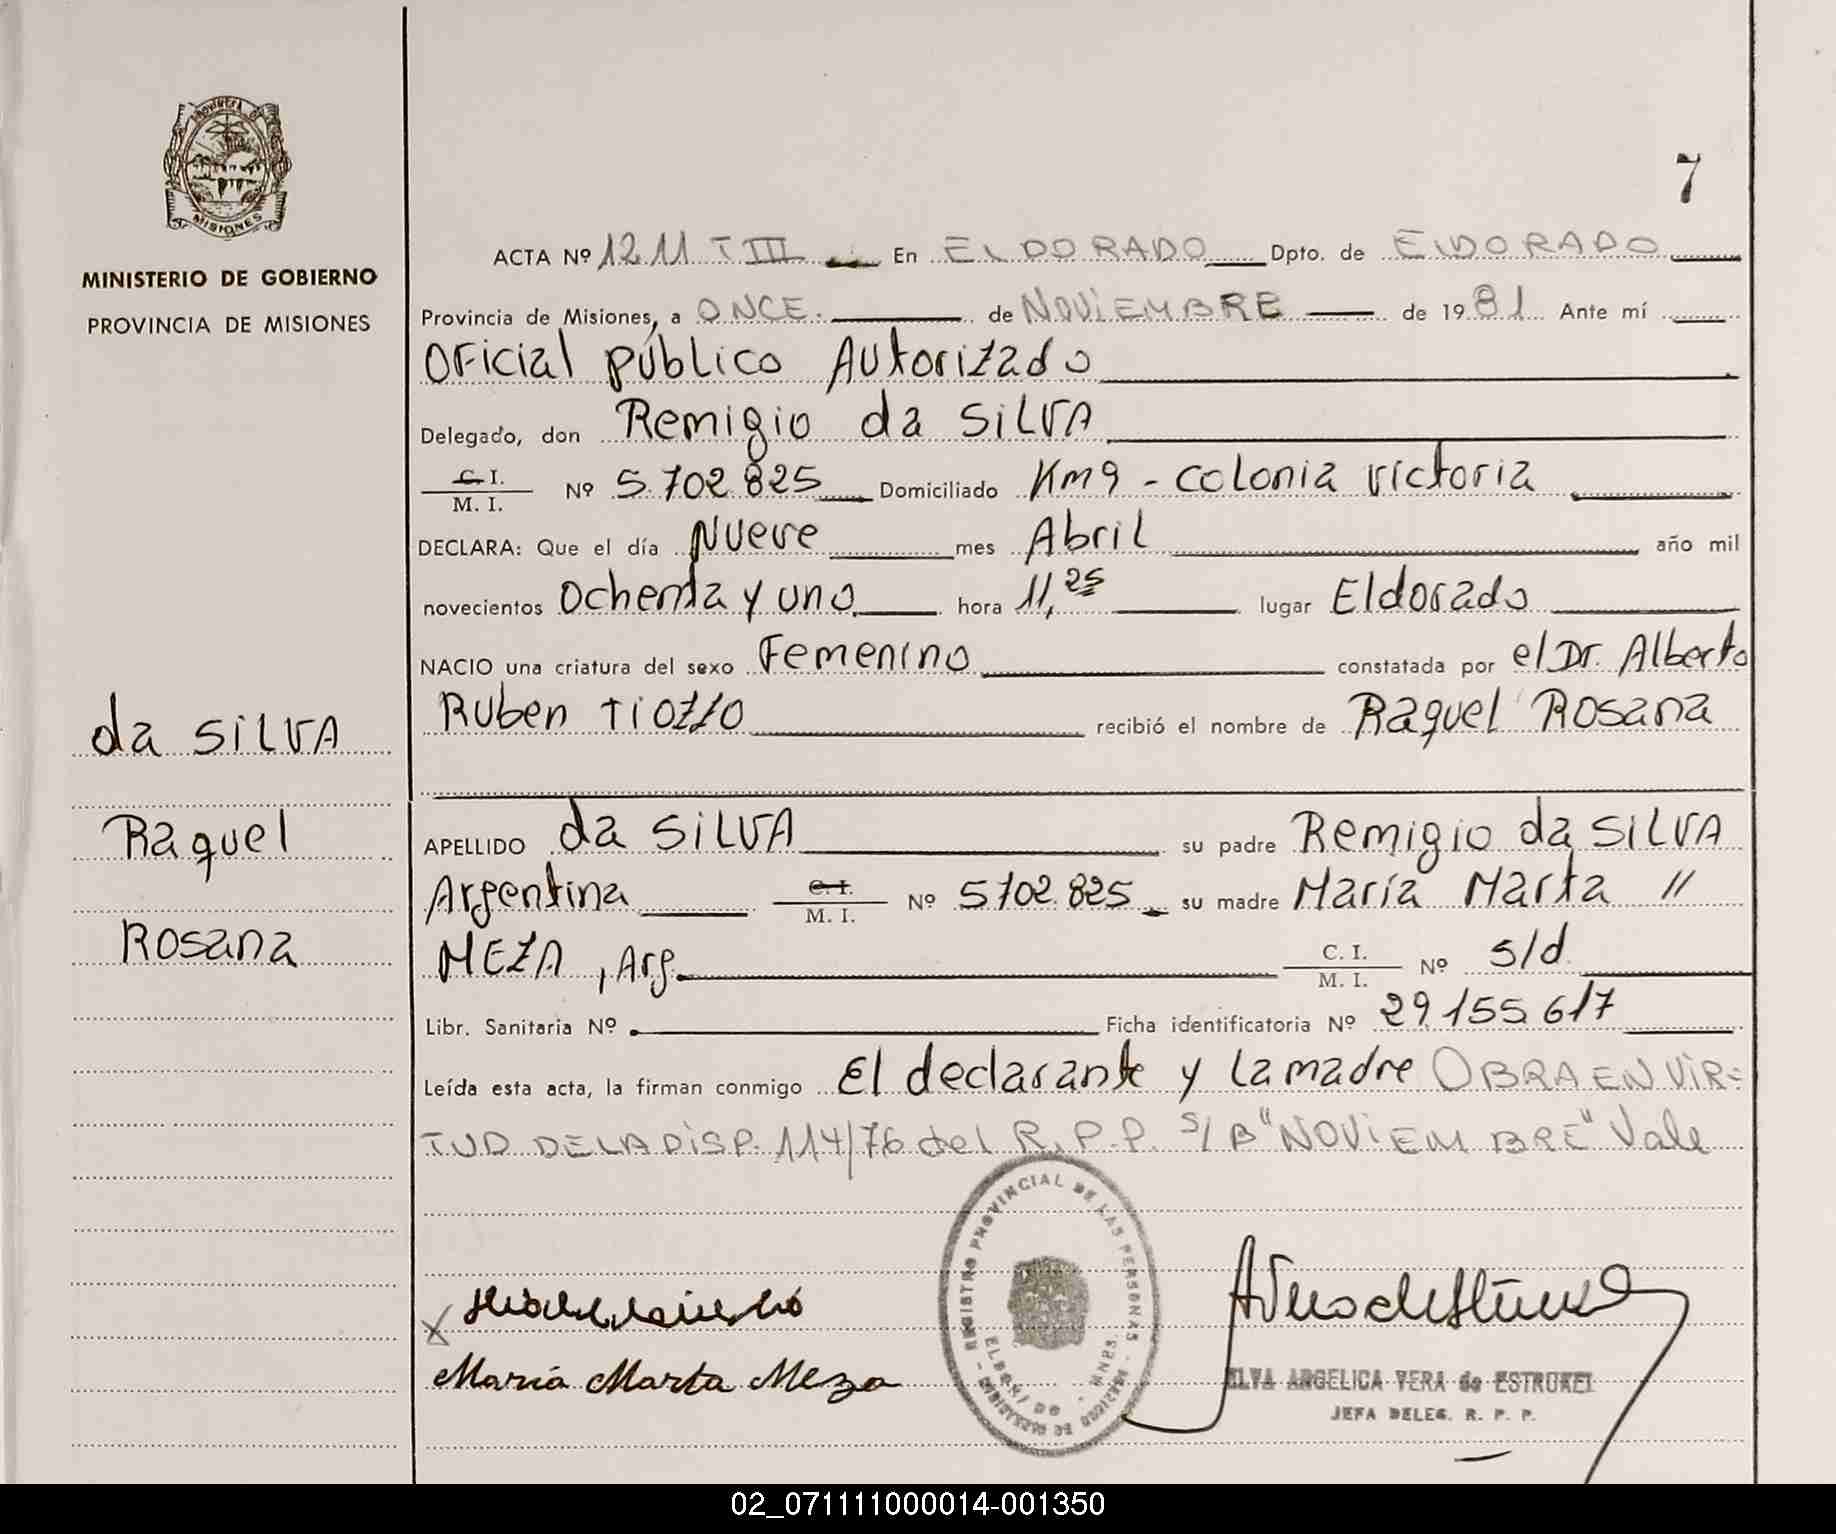 PROVINCIA DE
MISIONES
MINISTERIO DE GOBIERNO
PROVINCIA DE MISIONES
7
ACTA Nº 1211 T III En ELDORADO Dpto. de ELDORADO
Provincia de Misiones, a ONCE. de NOVIEMBRE de 1981 Ante mí
Oficial público Autorizado
Delegado, don Remigio da SILVA
C. I.
M. I. Nº 5.702.825 Domiciliado Km 9 - colonia victoria
DECLARA: Que el día Nueve mes Abril año mil
novecientos Ochenta y uno hora 11,25 lugar Eldorado
NACIO una criatura del sexo Femenino constatada por el Dr. Alberto
Ruben Tiozzo recibió el nombre de Raquel Rosana
da SILVA
Raquel
Rosana
APELLIDO da SILVA su padre Remigio da SILVA
Argentina C. I.
M. I. Nº 5702.825 su madre María Marta //
MEZA, Arg. C. I.
M. I. Nº s/d
Libr. Sanitaria Nº Ficha identificatoria Nº 29.155.617
Leída esta acta, la firman conmigo El declarante y la madre OBRA EN VIR=
TUD DE LA DISP. 114/76 del R.P.P. S/B "NOVIEMBRE" Vale
REGISTRO PROVINCIAL DE LAS PERSONAS
María Marta Meza
ELVA ANGELICA VERA de ESTRUKEL
JEFA DELEG. R. P. P.
02_071111000014-001350